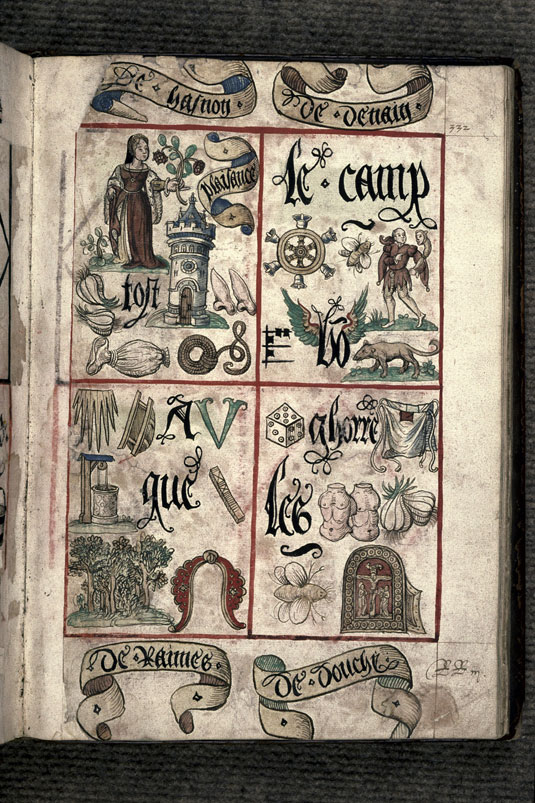 De hasnon
De Denain
332
plaisance
tost
Le camp
bō
A V
que
ghorre
les
De Raimes
De Douchē